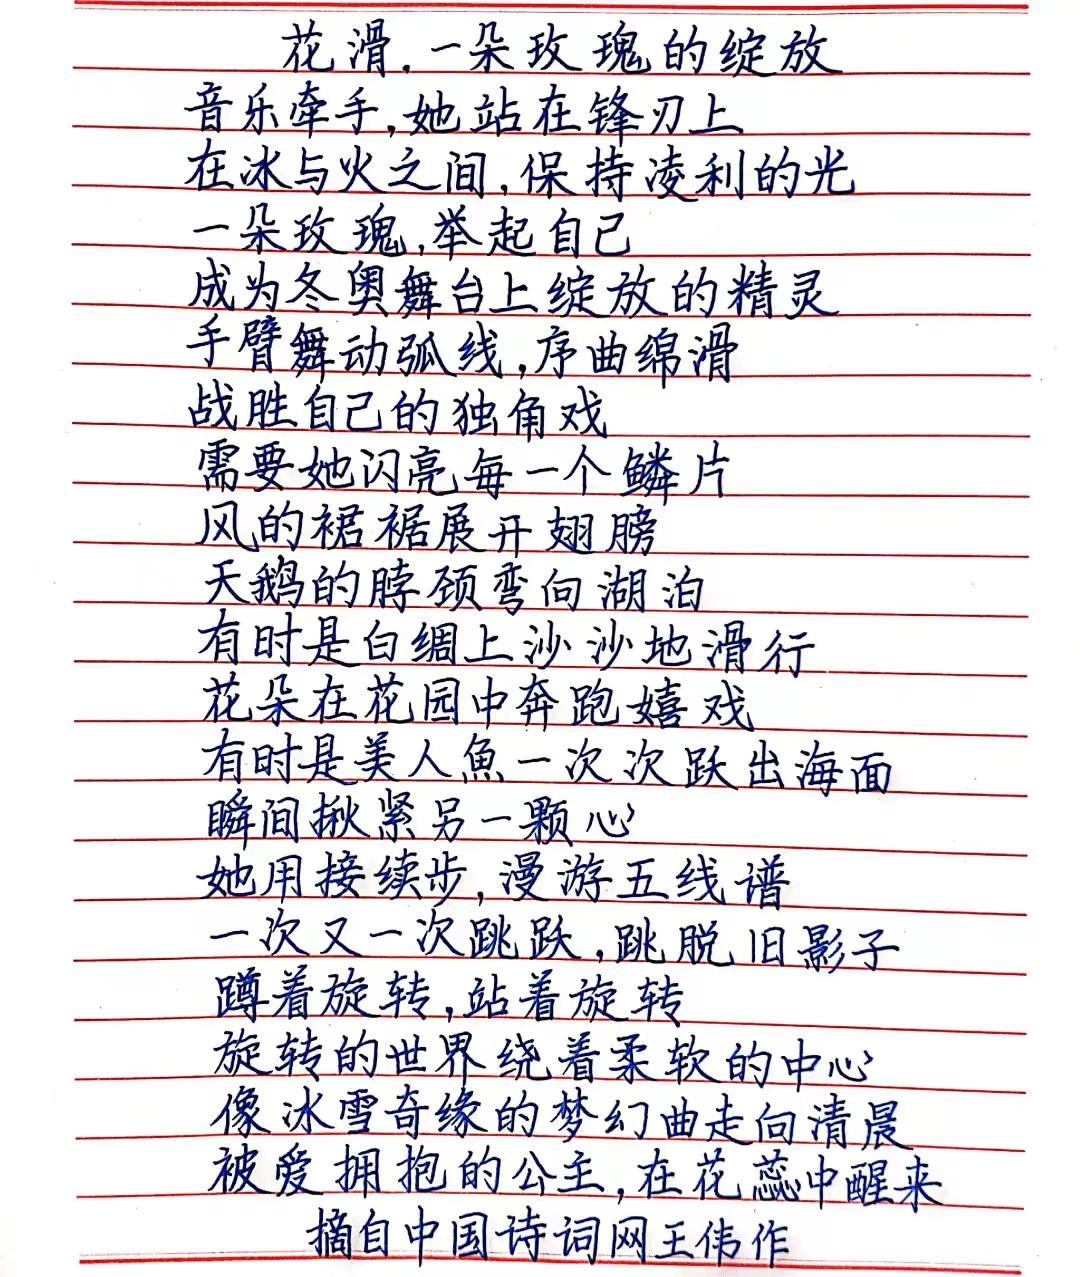 花滑，一朵玫瑰的绽放
音乐牵手，她站在锋刃上
在冰与火之间，保持凌利的光
一朵玫瑰，举起自己
成为冬奥舞台上绽放的精灵
手臂舞动弧线，序曲绵滑
战胜自己的独角戏
需要她闪亮每一个鳞片
风的裙裾展开翅膀
天鹅的脖颈弯向湖泊
有时是白绸上沙沙地滑行
花朵在花园中奔跑嬉戏
有时是美人魚一次次跃出海面
瞬间揪紧另一颗心
她用接续步，漫游五线谱
一次又一次跳跃，跳脱旧影子
蹲着旋转，站着旋转
旋转的世界绕着柔软的中心
像冰雪奇缘的梦幻曲走向清晨
被爱拥抱的公主，在花蕊中醒来
摘自中国诗词网王伟作